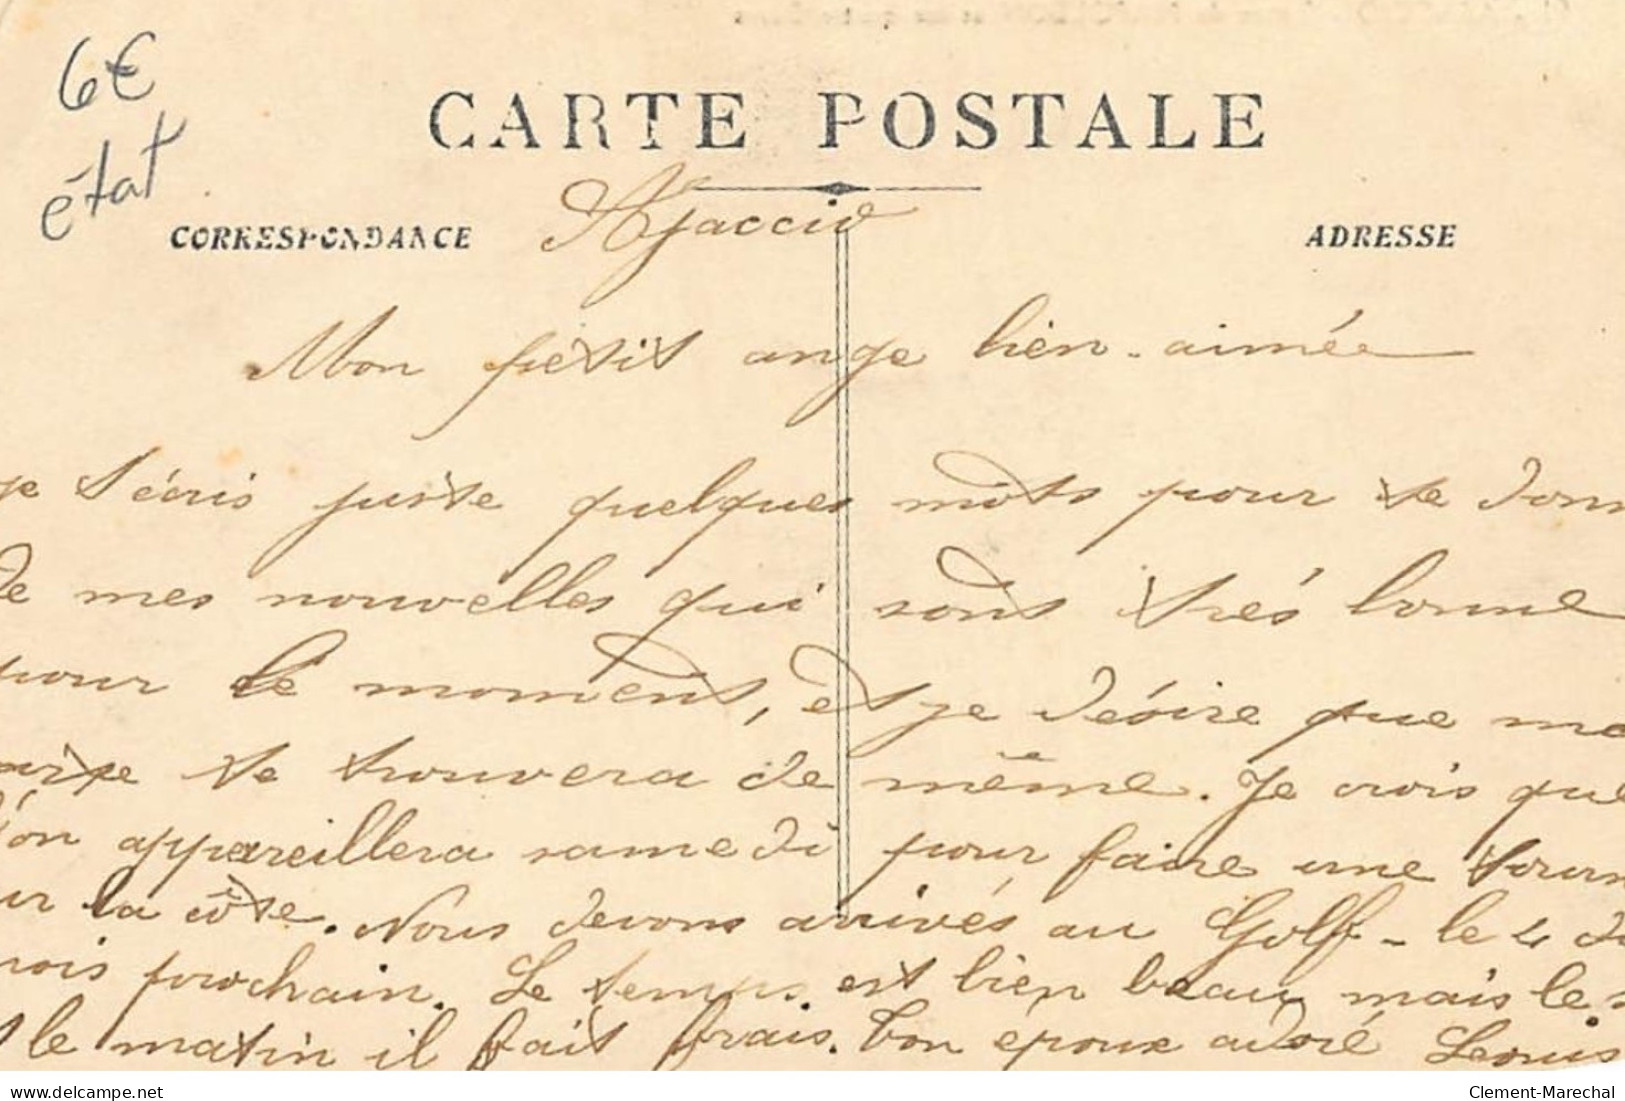 6€
état
CARTE POSTALE
CORRESPONDANCE
ADRESSE
Ajaccio
Mon petit ange bien-aimée
je t'écris juste quelques mots pour te donn
de mes nouvelles qui sont très bonne
pour le moment, et je désire que ma
te trouvera de même. Je crois que
l'on appareillera samedi pour faire une tourn
ur la côte. Nous devons arrivés au Golf - le 4 du
mois prochain. Le temps est bien beau mais le s
t le matin il fait frais. Ton époux adoré Leonis
delcampe.net
Clement-Marechal